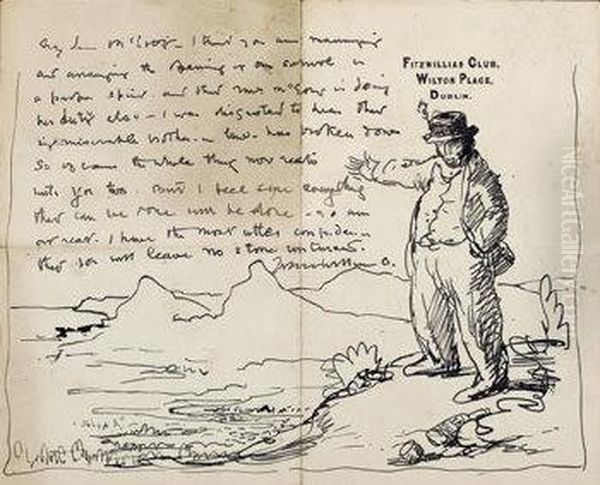 My dear McGoey - I trust you are managing
and arranging the opening of our school in
a proper spirit and that Mrs McGoey is doing
her duty also - I was disgusted to hear that
my miserable brother-in-law has broken down
So of course the whole thing now rests
with you two. But I feel sure everything
that can be done will be done
I have the most utter confidence
that you will leave no stone unturned
FITZWILLIAM CLUB,
WILTON PLACE,
DUBLIN.